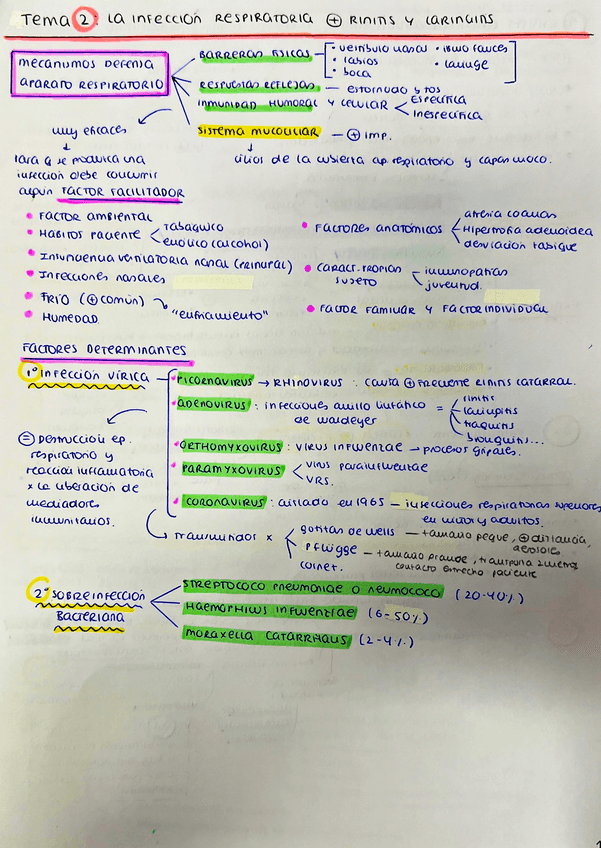 Tema 2: LA INFECCIÓN RESPIRATORIA ⊕ RINITIS Y LARINGITIS
MECANISMOS DEFENSA
APARATO RESPIRATORIO
BARRERAS FÍSICAS
• vestíbulo nasal • istmo fauces
• labios • laringe
• boca
RESPUESTAS REFLEJAS — estornudo y tos
INMUNIDAD HUMORAL Y CELULAR < Específica
Inespecífica
SISTEMA MUCOCILIAR — ⊕ imp.
cilios de la cubierta ep. respiratorio y capa moco.
muy eficaces
para q se produzca una
infección debe concurrir
algún FACTOR FACILITADOR
• FACTOR AMBIENTAL
• HÁBITOS PACIENTE < Tabáquico
enólico (alcohol)
• Insuficiencia ventilatoria nasal (principal)
• Infecciones nasales
• FRÍO (⊕ común)
"enfriamiento"
• HUMEDAD.
• FACTORES ANATÓMICOS
atresia coanas
Hipertrofia adenoidea
desviación tabique
• CARACT. PROPIAS
SUJETO
inmunopatías
juventud.
• FACTOR FAMILIAR Y FACTOR INDIVIDUAL
FACTORES DETERMINANTES
1º INFECCIÓN VÍRICA
• PICORNAVIRUS → RHINOVIRUS : causa ⊕ frecuente RINITIS CATARRAL.
• ADENOVIRUS : infecciones anillo linfático
de waldeyer
= rinitis
laringitis
traqueitis
bronquitis...
• ORTHOMYXOVIRUS : VIRUS INFLUENZAE → procesos gripales.
• PARAMYXOVIRUS < virus parainfluenzae
VRS.
• CORONAVIRUS : aislado en 1965 — infecciones respiratorias superiores
en niños y adultos.
= DESTRUCCIÓN ep.
respiratorio y
reacción inflamatoria
x la liberación de
mediadores
inmunitarios.
Transmindos x
gotitas de wells — tamaño peque, ⊕ distancia,
aerosoles
Pflügge — tamaño grande, transporta 2 metros
contacto estrecho paciente
2º SOBREINFECCIÓN
BACTERIANA
STREPTOCOCO pneumoniae o neumococo (20-40%)
HAEMOPHILUS INFLUENZAE (6-50%)
MORAXELLA CATARRHALIS (2-4%)
1